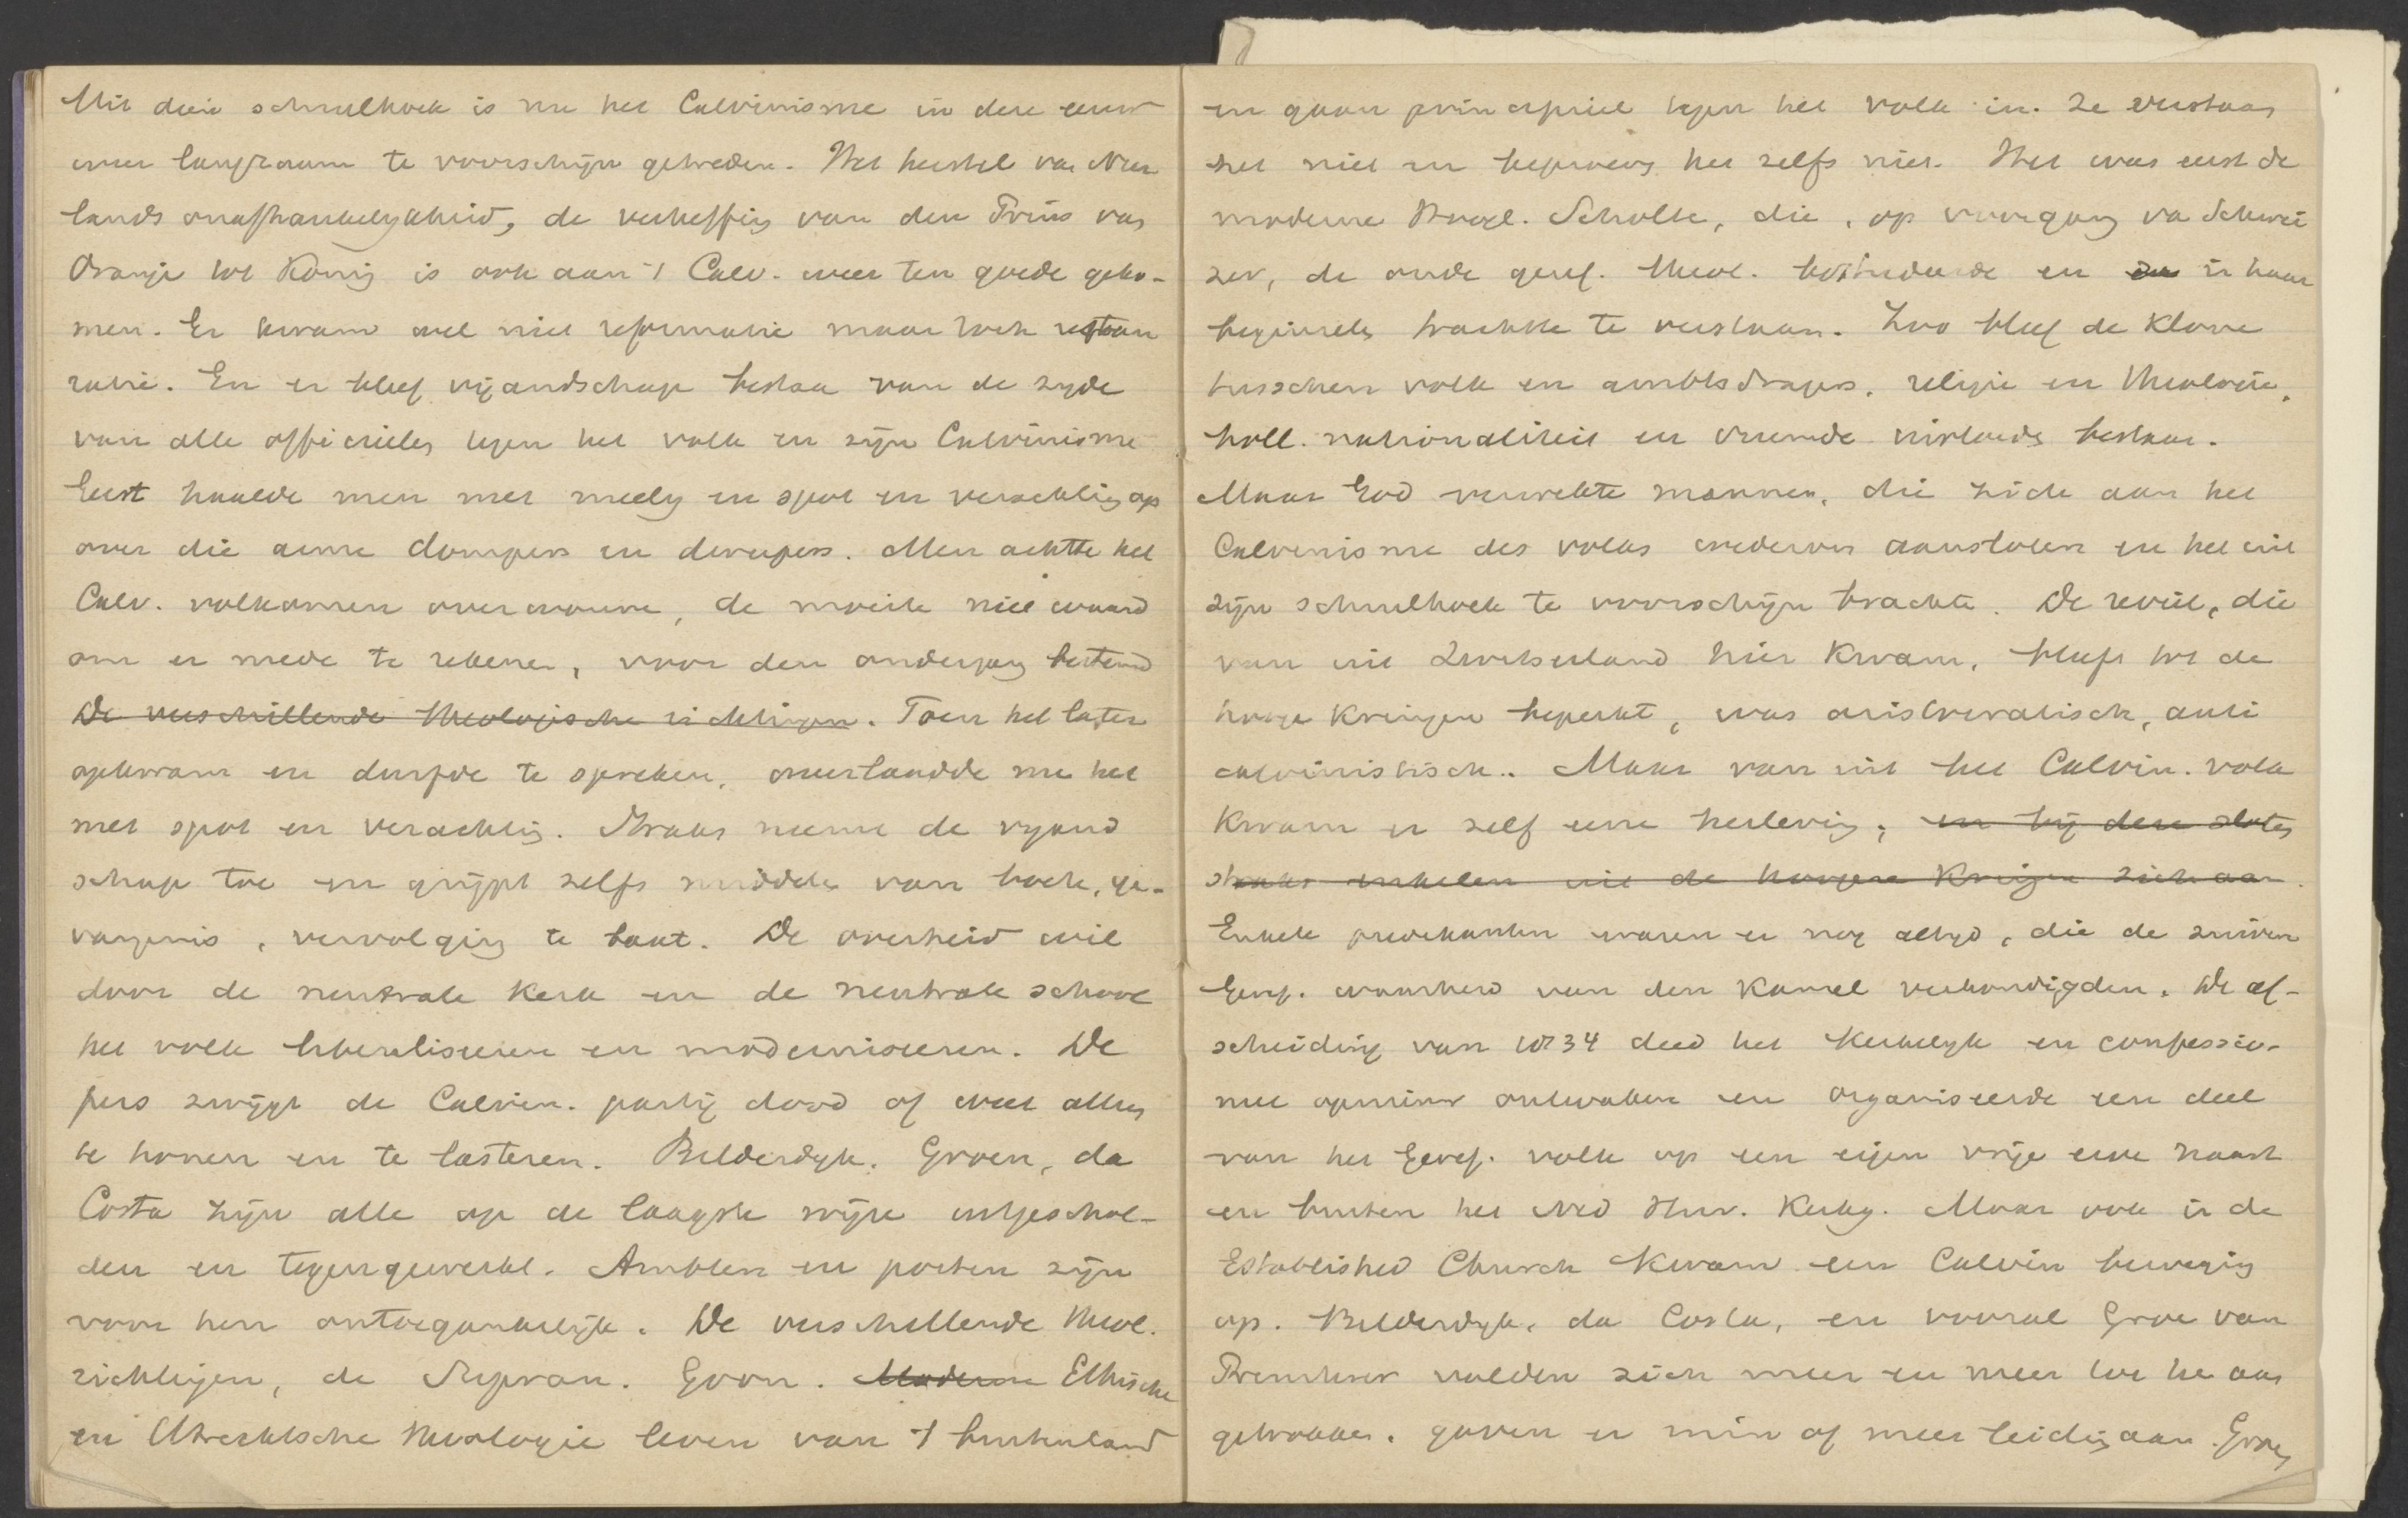 Uit dien schuilhoek is nu het Calvinisme in deze eeuw
weer langzaam te voorschijn getreden. Het herstel van Neer
lands onafhankelykheid, de verheffing van den Prins van
Oranje tot Konig is ook aan 't Calv. weer ten goede geko-
men. Er kwam wel niet reformatie maar toch restau
ratie. En er bleef vijandschap bestaan van de zyde
van alle officieelen tegen het volk en zijn Calvinisme
Eerst haalde men met meely en spot en verachting op
over die arme dompers en drupers. Men achtte het
Calv. volkomen overwonnen, de moeite niet waard
om er mede te rekenen, voor den ondergang bestemd
De verschillende theologische richtingen. Toen het later
opkwam en durfde te spreken, overlaadde me het
met spot en verachting. Straks neemt de vyand
schap toe en grijpt zelfs middelen van boete, ge-
vangenis, vervolging te baat. De overheid wil
door de neutrale Kerk en de neutrale school
het volk liberaliseren en moderniseeren. De
pers zwijgt de Calvin. partij dood of weet alleen
te honen en te lasteren. Bilderdyk, Groen, da
Costa zijn alle op de laagste wijze uitgeschol-
den en tegengewerkt. Ambten en posten zijn
voor hen ontoegankelijk. De verschillende theol.
richtingen, de Supran. Gron. Moderne Ethische
en Utrechtsche theologie leven van 't buitenland
en gaan principieel tegen het volk in. Ze verstaan
het niet en beproeven het zelfs niet. Het was eerst de
moderne Hoogl. Scholte, die, op voorgang van Schwei
zer, de oude geref. theol. bestudeerde en in haar
beginsels trachtte te verstaan. Zoo bleef de Klove
tusschen volk en ambtsdragers, religie en theologie,
holl. nationaliteit en vreemde invloeds bestaan.
Maar God verwekte mannen, die zich aan het
Calvinisme des volks wederom aansloten en het uit
zijn schuilhoek te voorschijn brachte. De reveil, die
van uit Zwitserland hier kwam, bleef tot de
hooge kringen beperkt, was aristocratisch, anti
calvinistisch.. Maar van uit het Calvin. volk
kwam er zelf eene herleving, en bij deze sloten
straks enkelen uit de hoogere kringen zich aan.
Enkele predikanten waren er nog altyd, die de zuiver
Geref. waarheid van den Kansel verkondigden. De af-
scheiding van 1834 deed het Kerkelyk en confessio-
neel opinion ontwaken en organiseerde een deel
van het Geref. volk op een eigen vrije erve naast
en buiten het Ned Herv. Kerkg. Maar ook in de
Established Church kwam een Calvin beweging
op. Bilderdyk, da Costa, en vooral Groe van
Prinsterer voelden zich meer en meer tot he aan
getrokken, gaven er min of meer leiding aan. Groen